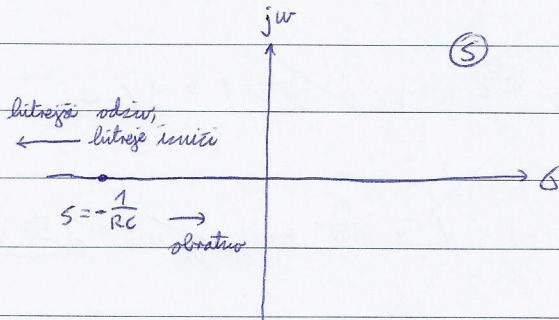 jω
S
hitrejši odziv,
hitreje izniči
σ
s = -1/RC
obratno